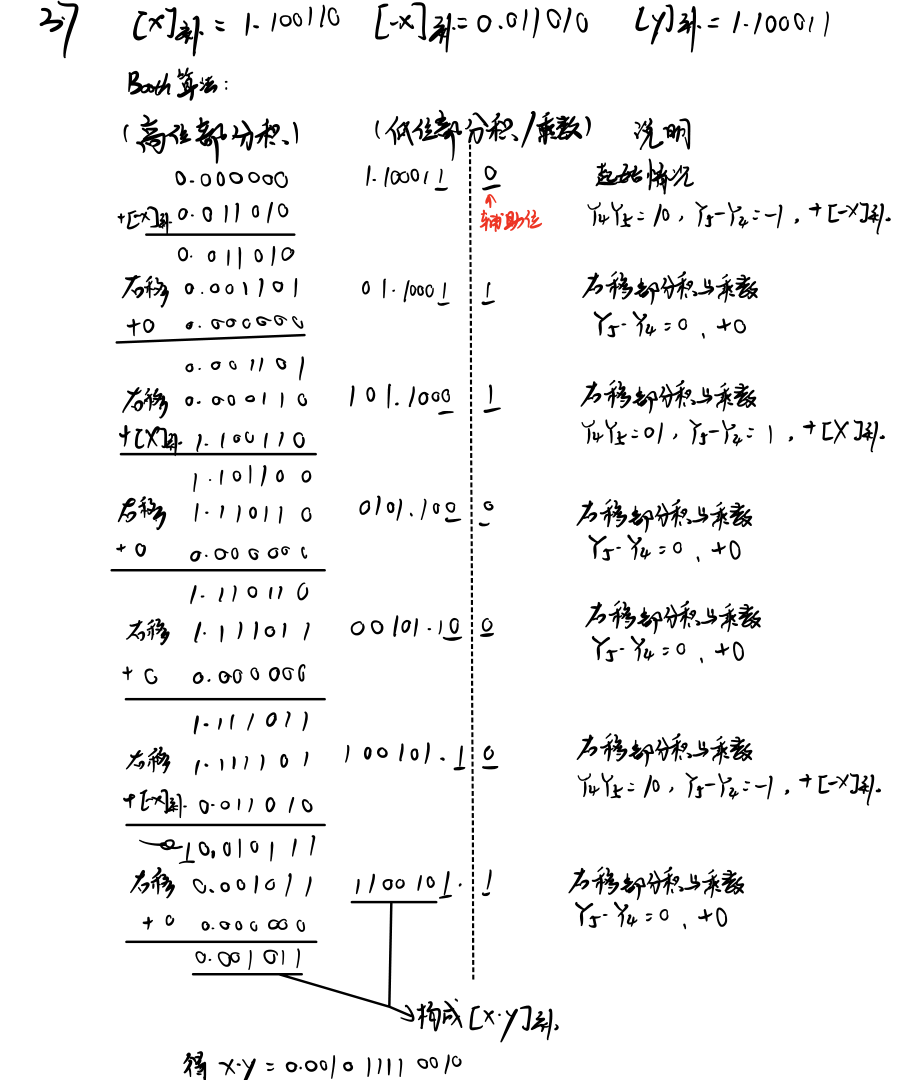 37 [X]补 = 1.100110 [-X]补 = 0.011010 [y]补 = 1.100011
Booth 算法:
(高位部分积) (低位部分积/乘数) 说明
0.000000 1.100011 0 起始情况
+[-X]补 0.011010 辅助位 Y4Y5=10, Y5-Y4=-1, +[-X]补.
0.011010
右移 0.001101 01.10001 1 右移部分积与乘数
+0 0.000000 Y5-Y4=0, +0
0.001101
右移 0.000110 101.1000 1 右移部分积与乘数
+[X]补 1.100110 Y4Y5=01, Y5-Y4=1, +[X]补.
1.101100
右移 1.110110 0101.100 0 右移部分积与乘数
+0 0.000000 Y5-Y4=0, +0
1.110110
右移 1.111011 00101.10 0 右移部分积与乘数
+0 0.000000 Y5-Y4=0, +0
1.111011
右移 1.111101 100101.1 0 右移部分积与乘数
+[-X]补 0.011010 Y4Y5=10, Y5-Y4=-1, +[-X]补.
10.010111
右移 0.001011 1100101. 1 右移部分积与乘数
+0 0.000000 Y5-Y4=0, +0
0.001011
构成[X·y]补.
得 X·y = 0.001011110010